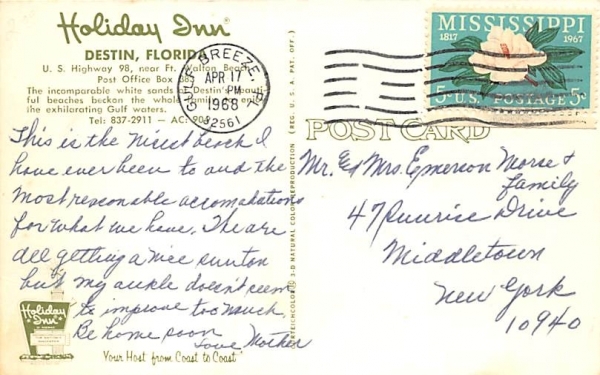 Holiday Inn®
DESTIN, FLORIDA
U. S. Highway 98, near Ft. Walton Beach
Post Office Box
The incomparable white sands of Destin's beauti-
ful beaches beckon the whole family to enjoy
the exhilarating Gulf waters.
Tel: 837-2911 — AC: 904
GULF BREEZE, FL
APR 17
PM
1968
32561
MISSISSIPPI
1817 1967
5c U.S. POSTAGE 5c
POST CARD
(REG. U. S. PAT. OFF.)
3-D NATURAL COLOR REPRODUCTION
This is the nicest beach I
have ever been to and the
most reasonable accomadations
for what we have. The are
all getting a nice suntan
but my ankle doesn't seem
to improve too much.
Be home soon
Love Mother
Mr. Ed Mrs. Emerson Morse &
family
47 Sunrise Drive
Middletown
New York
10940
Holiday
Inn
Your Host from Coast to Coast